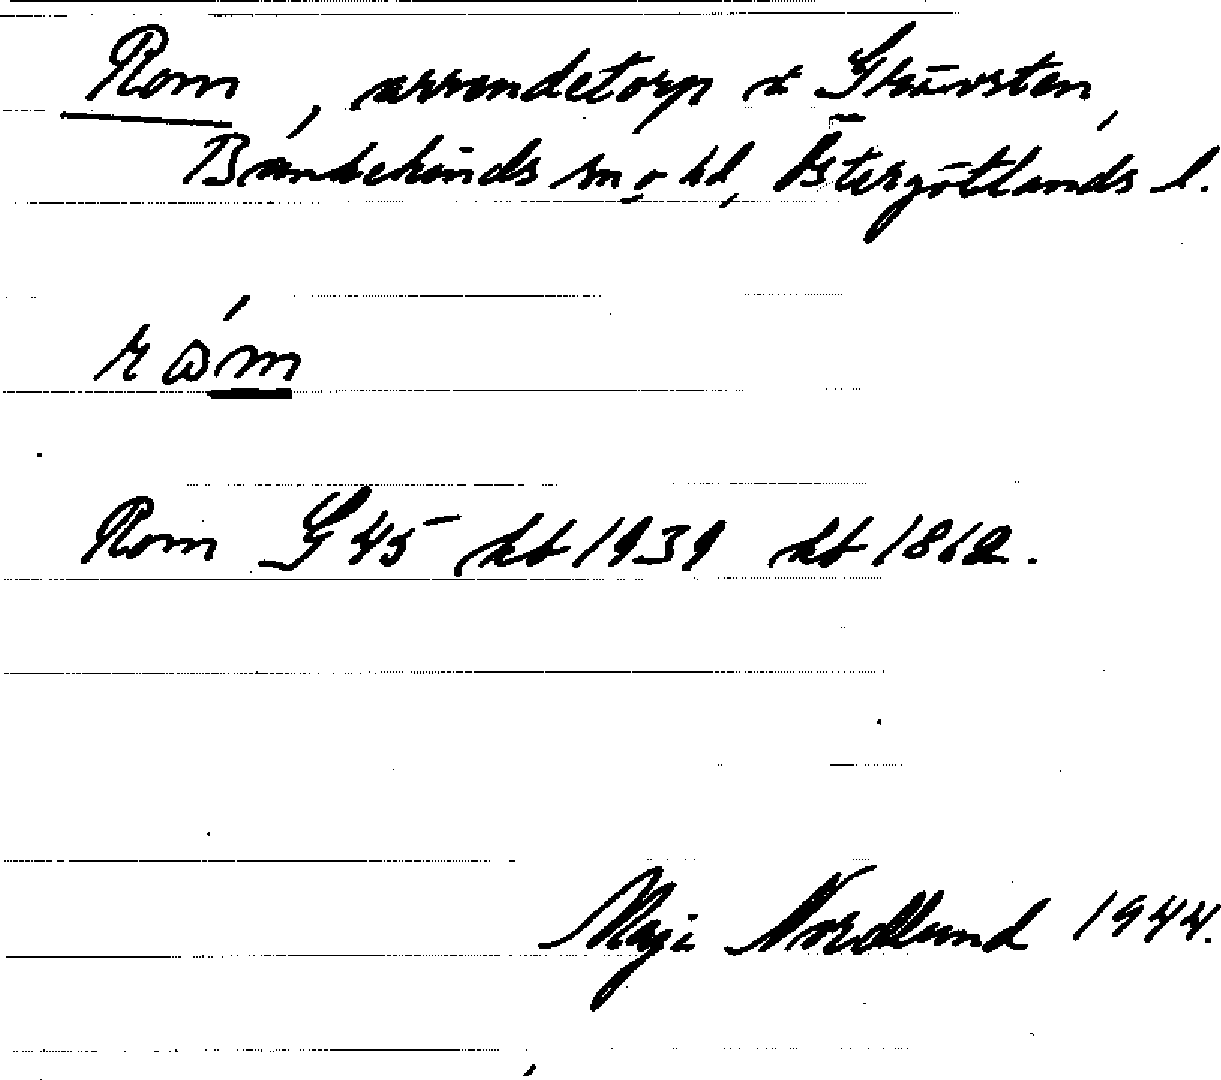 Rom, arrendetorp u Skövsten,
Bankekinds sn o hd, Östergötlands l.
ròm
Rom G 45 kb 1939 kb 1862.
Maji Nordlund 1944.